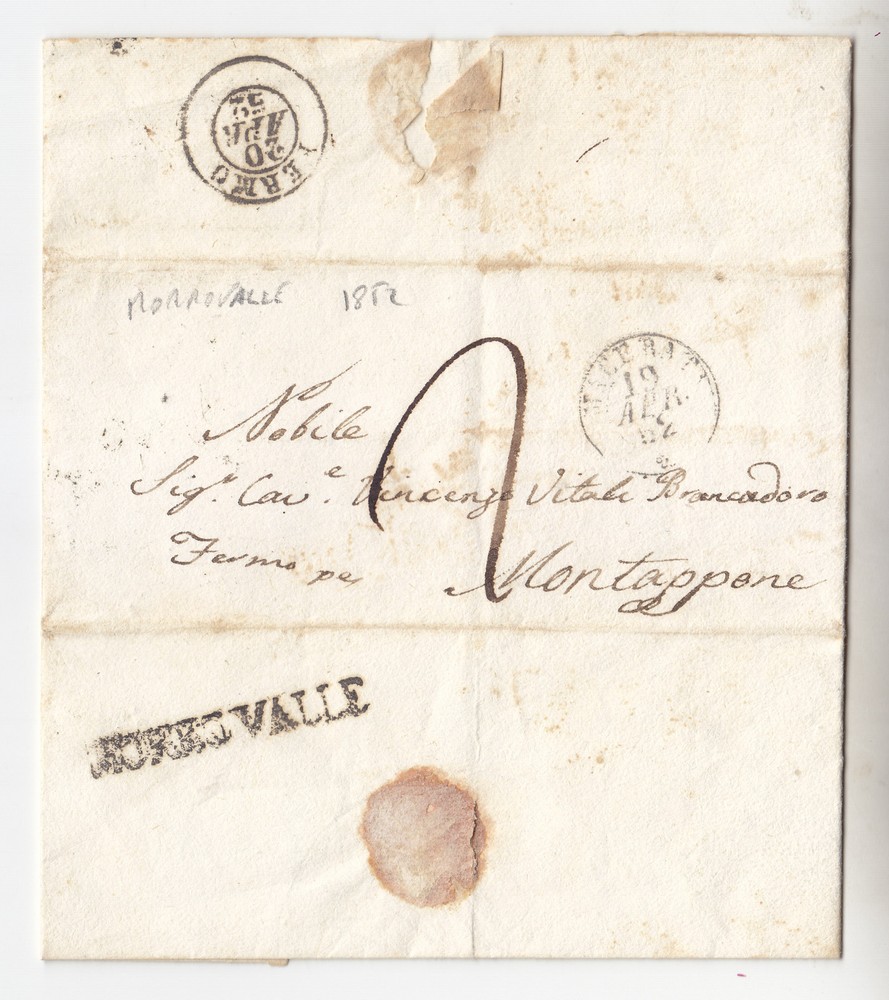 FERMO
20
APR
52
MORROVALLE 1852
MACERATA
19
APR.
52
2
Nobile
Sig.r Cav.e Vincenzo Vitali Brancadoro
Fermo per Montappone
MORRO VALLE